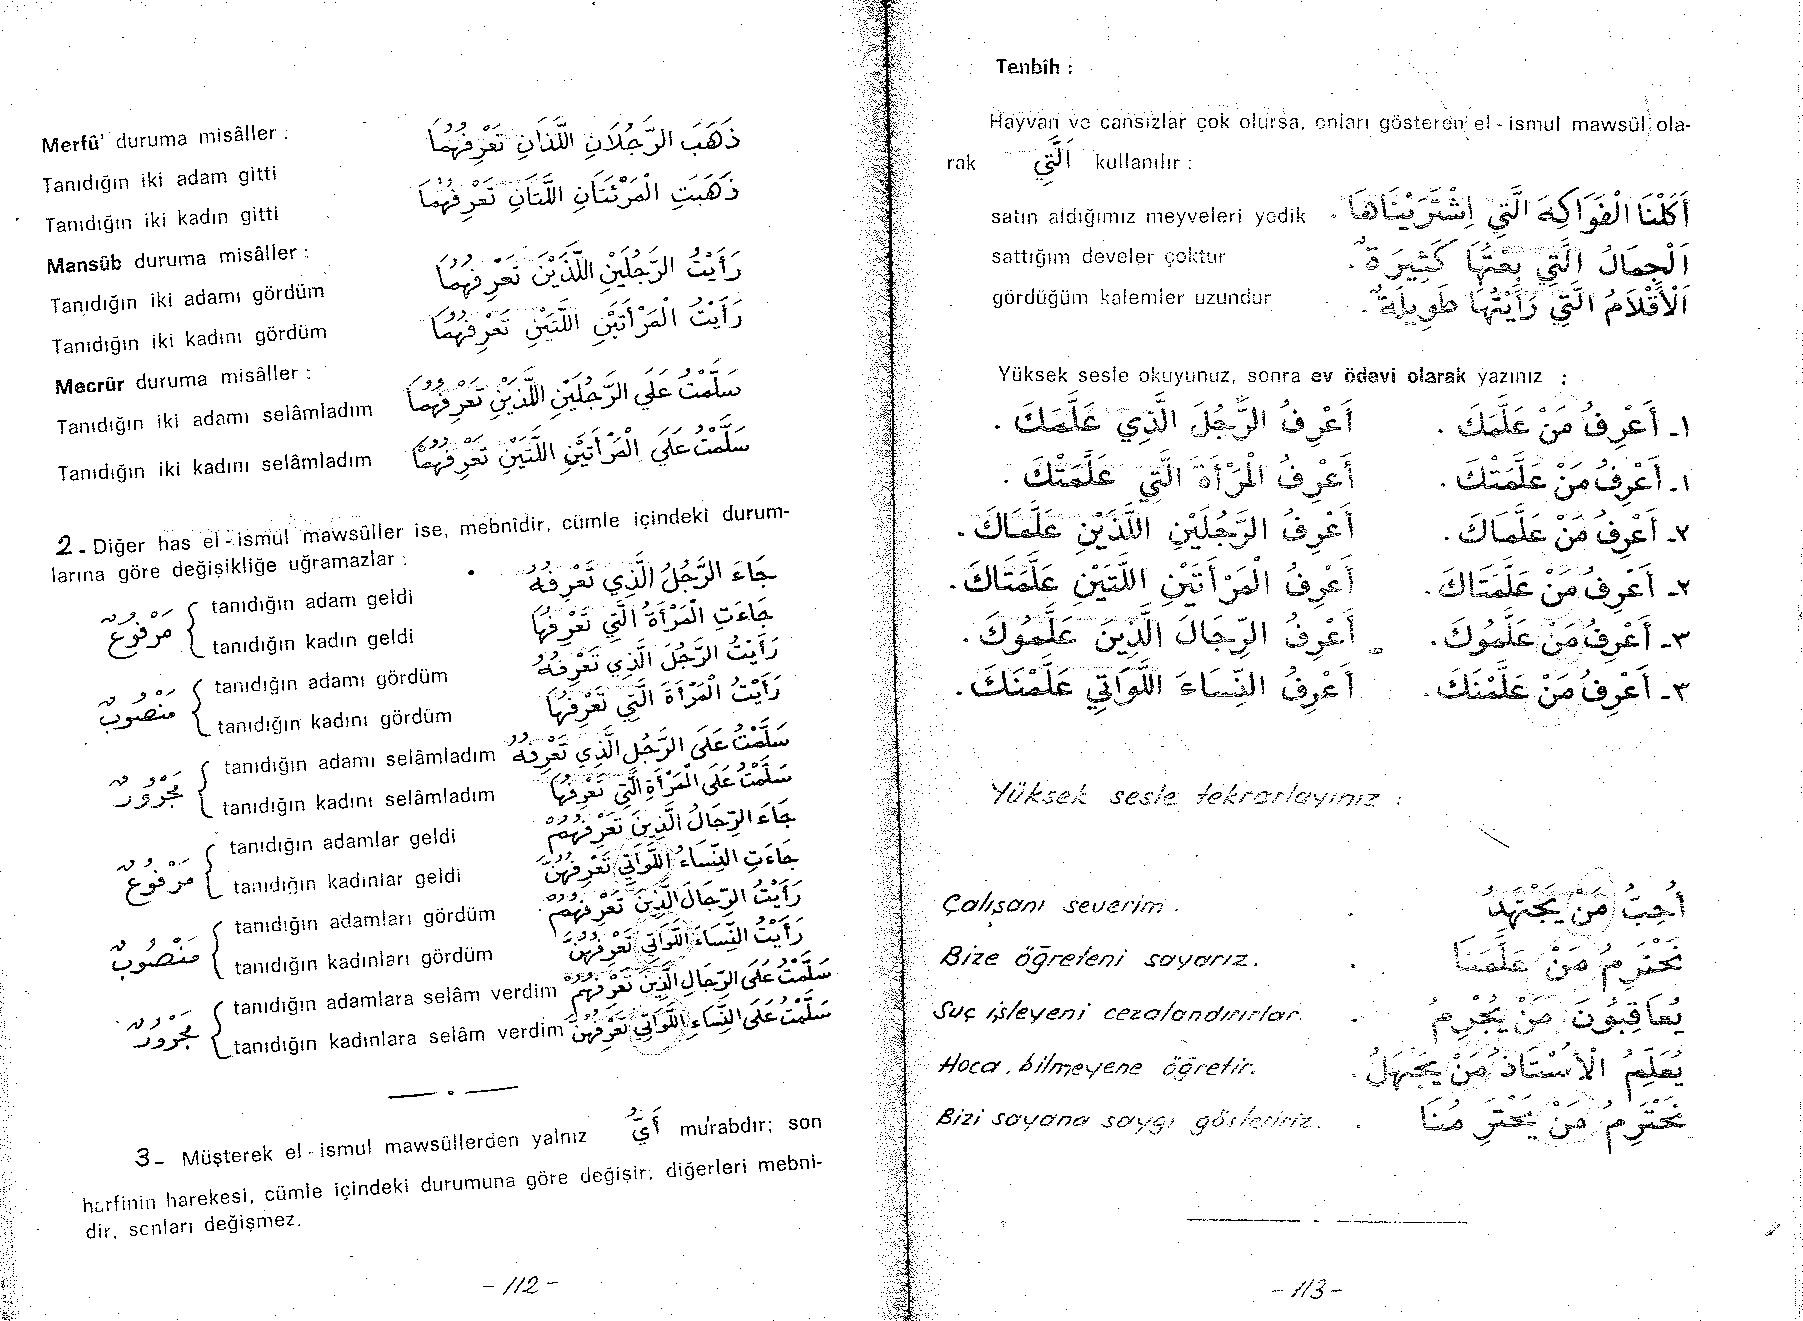 Merfû' duruma misâller :
ذَهَبَ الرَّجُلَانِ اللَّذَانِ تَعْرِفُهُمَا
Tanıdığın iki adam gitti
ذَهَبَتِ الْمَرْئَتَانِ اللَّتَانِ تَعْرِفُهُمَا
Tanıdığın iki kadın gitti
Mansûb duruma misâller :
رَأَيْتُ الرَّجُلَيْنِ اللَّذَيْنِ تَعْرِفُهُمَا
Tanıdığın iki adamı gördüm
رَأَيْتُ الْمَرْأَتَيْنِ اللَّتَيْنِ تَعْرِفُهُمَا
Tanıdığın iki kadını gördüm
Mecrûr duruma misâller :
سَلَّمْتُ عَلَى الرَّجُلَيْنِ اللَّذَيْنِ تَعْرِفُهُمَا
Tanıdığın iki adamı selâmladım
سَلَّمْتُ عَلَى الْمَرْأَتَيْنِ اللَّتَيْنِ تَعْرِفُهُمَا
Tanıdığın iki kadını selâmladım
2 - Diğer has el-ismul mawsûller ise, mebnidir, cümle içindeki durum-
larına göre değişikliğe uğramazlar :
مَرْفُوعٌ
tanıdığın adam geldi جَاءَ الرَّجُلُ الَّذِي تَعْرِفُهُ
tanıdığın kadın geldi جَاءَتِ الْمَرْأَةُ الَّتِي تَعْرِفُهَا
مَنْصُوبٌ
tanıdığın adamı gördüm رَأَيْتُ الرَّجُلَ الَّذِي تَعْرِفُهُ
tanıdığın kadını gördüm رَأَيْتُ الْمَرْأَةَ الَّتِي تَعْرِفُهَا
مَجْرُورٌ
tanıdığın adamı selâmladım سَلَّمْتُ عَلَى الرَّجُلِ الَّذِي تَعْرِفُهُ
tanıdığın kadını selâmladım سَلَّمْتُ عَلَى الْمَرْأَةِ الَّتِي تَعْرِفُهَا
مَرْفُوعٌ
tanıdığın adamlar geldi جَاءَ الرِّجَالُ الَّذِينَ تَعْرِفُهُمْ
tanıdığın kadınlar geldi جَاءَتِ النِّسَاءُ اللَّوَاتِي تَعْرِفُهُنَّ
مَنْصُوبٌ
tanıdığın adamları gördüm رَأَيْتُ الرِّجَالَ الَّذِينَ تَعْرِفُهُمْ
tanıdığın kadınları gördüm رَأَيْتُ النِّسَاءَ اللَّوَاتِي تَعْرِفُهُنَّ
مَجْرُورٌ
tanıdığın adamlara selâm verdim سَلَّمْتُ عَلَى الرِّجَالِ الَّذِينَ تَعْرِفُهُمْ
tanıdığın kadınlara selâm verdim سَلَّمْتُ عَلَى النِّسَاءِ اللَّوَاتِي تَعْرِفُهُنَّ
3 - Müşterek el-ismul mawsûllerden yalnız أَيُّ murabdır; son
harfinin harekesi, cümle içindeki durumuna göre değişir, diğerleri mebni-
dir, sonları değişmez.
- 112 -
Tenbîh :
Hayvan ve cansızlar çok olursa, onları gösteren el-ismul mawsûl ola-
rak اَلَّتِي kullanılır :
satın aldığımız meyveleri yedik أَكَلْنَا الْفَوَاكِهَ الَّتِي اِشْتَرَيْنَاهَا .
sattığım develer çoktur اَلْجِمَالُ الَّتِي بِعْتُهَا كَثِيرَةٌ .
gördüğüm kalemler uzundur اَلْأَقْلَامُ الَّتِي رَأَيْتُهَا طَوِيلَةٌ .
Yüksek sesle okuyunuz, sonra ev ödevi olarak yazınız :
١ـ أَعْرِفُ مَنْ عَلَّمَكَ . أَعْرِفُ الرَّجُلَ الَّذِي عَلَّمَكَ .
١ـ أَعْرِفُ مَنْ عَلَّمَتْكَ . أَعْرِفُ الْمَرْأَةَ الَّتِي عَلَّمَتْكَ .
٢ـ أَعْرِفُ مَنْ عَلَّمَاكَ . أَعْرِفُ الرَّجُلَيْنِ اللَّذَيْنِ عَلَّمَاكَ .
٢ـ أَعْرِفُ مَنْ عَلَّمَتَاكَ . أَعْرِفُ الْمَرْأَتَيْنِ اللَّتَيْنِ عَلَّمَتَاكَ .
٣ـ أَعْرِفُ مَنْ عَلَّمُوكَ . أَعْرِفُ الرِّجَالَ الَّذِينَ عَلَّمُوكَ .
٣ـ أَعْرِفُ مَنْ عَلَّمْنَكَ . أَعْرِفُ النِّسَاءَ اللَّوَاتِي عَلَّمْنَكَ .
Yüksek sesle tekrarlayınız :
Çalışanı severim . أُحِبُّ مَنْ يَجْتَهِدُ .
Bize öğreteni sayarız . نَحْتَرِمُ مَنْ عَلَّمَنَا .
Suç işleyeni cezalandırırlar . يُعَاقِبُونَ مَنْ يُجْرِمُ .
Hoca , bilmeyene öğretir. يُعَلِّمُ الْأُسْتَاذُ مَنْ يَجْهَلُ .
Bizi sayana saygı gösteririz. نَحْتَرِمُ مَنْ يَحْتَرِمُنَا .
- 113 -